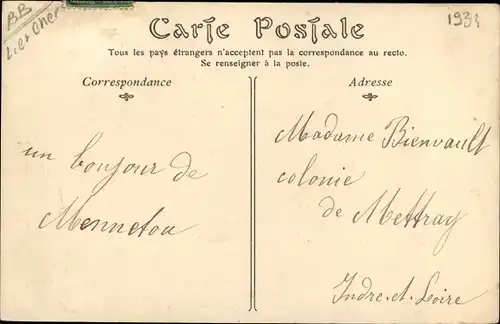 BB
Lir + Cher
1934
Carte Postale
Tous les pays étrangers n'acceptent pas la correspondance au recto.
Se renseigner à la poste.
Correspondance
un bonjour de
Mennetou
Adresse
Madame Bienvault
colonie
de Mettray
Indre-et-Loire